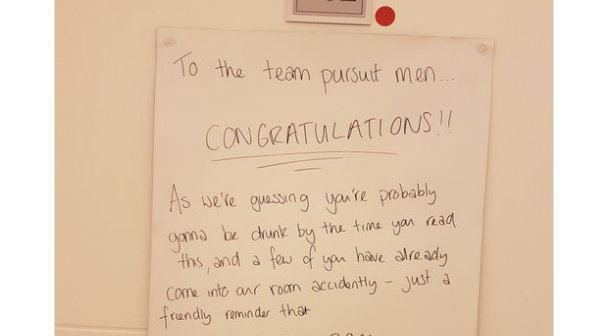 To the team pursuit men...
CONGRATULATIONS!!
As we're guessing you're probably
gonna be drunk by the time you read
this, and a few of you have already
come into our room accidently – just a
friendly reminder that